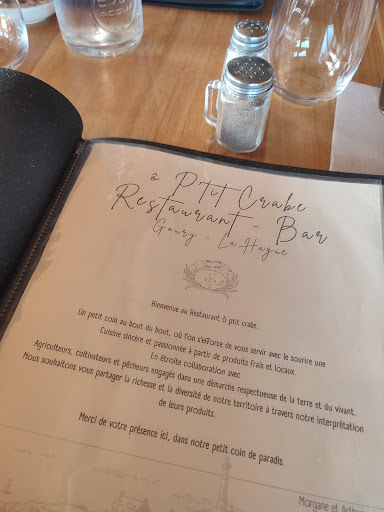 ô P'tit Crabe
Restaurant - Bar
Goury - La Hague
Bienvenue au Restaurant Ô p'tit crabe.
Un petit coin au bout du bout, où l'on s'efforce de vous servir avec le sourire une
Cuisine sincère et passionnée à partir de produits frais et locaux.
En étroite collaboration avec
Agriculteurs, cultivateurs et pêcheurs engagés dans une démarche respectueuse de la terre et du vivant.
Nous souhaitons vous partager la richesse et la diversité de notre territoire à travers notre interprétation
de leurs produits.
Merci de votre présence ici, dans notre petit coin de paradis.
Morgane et